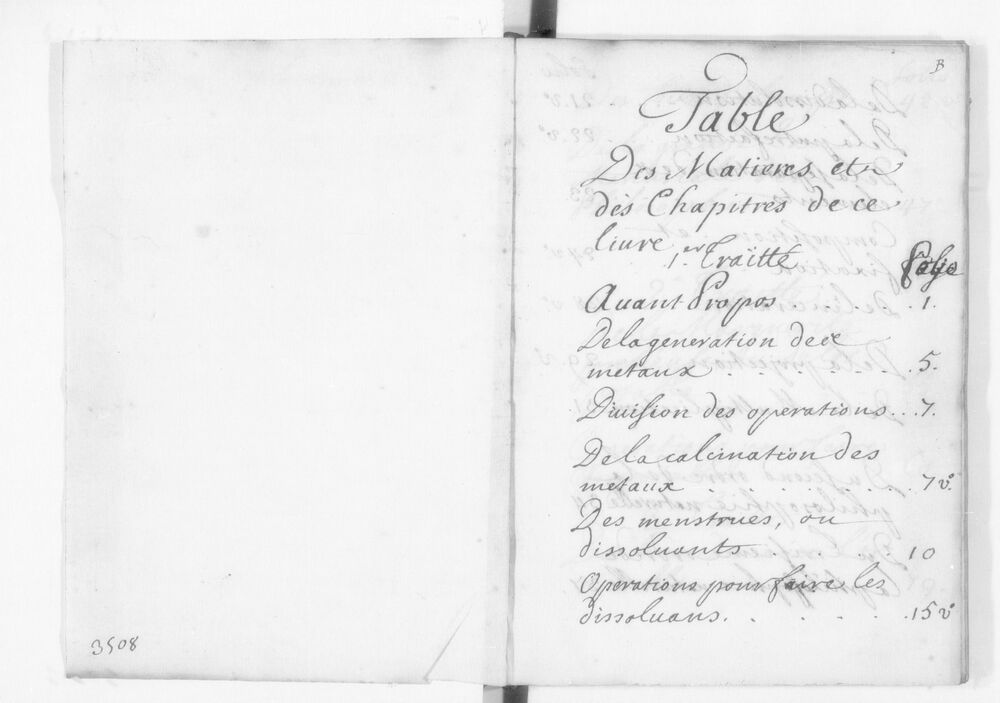 3508
B
Table
Des Matieres et
des Chapitres de ce
liure
1.er Traitté
folio
Auant Propos . . . . . . 1.
De la generation dex
metaux . . . . . . . 5.
Diuision des operations . . . 7.
De la calcination des
metaux . . . . . . . . 7 v.o
Des menstrues, ou
dissoluants . . . . . . 10
Operations pour faire les
dissoluans. . . . . . . 15 v.o